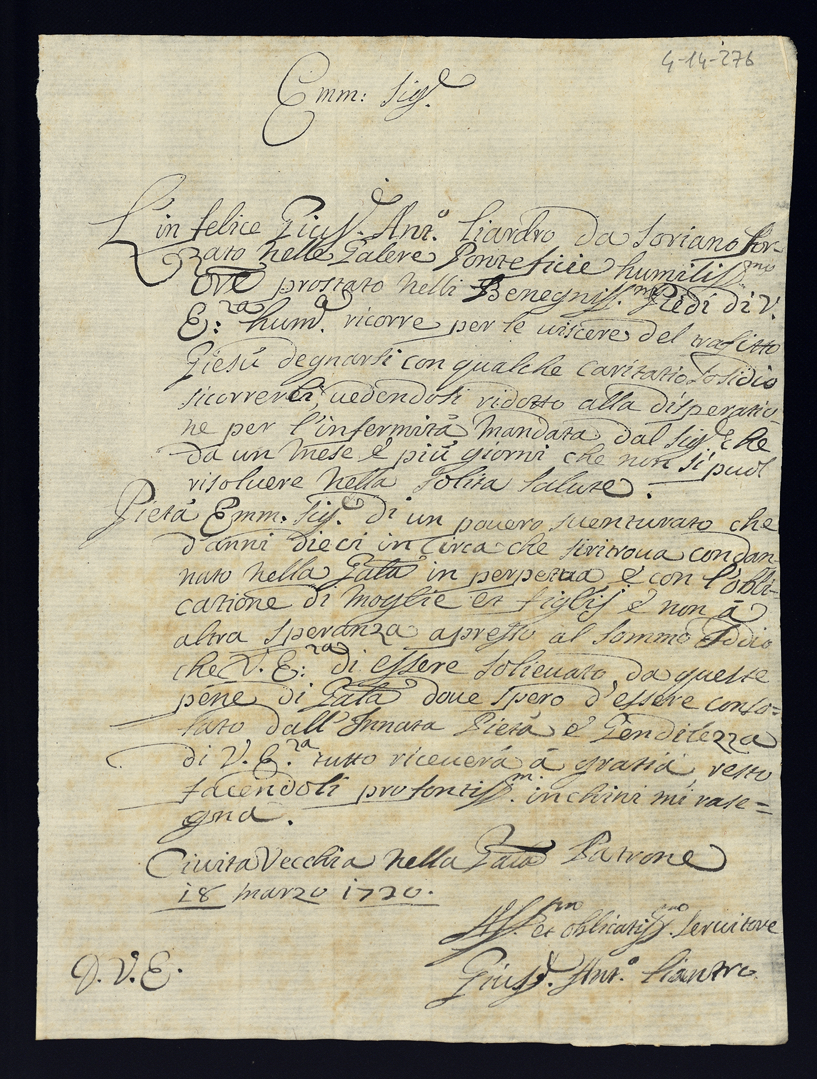 4-14-276
Emm: Sig.e
L'in felice Gius.e Ant.o Liardro da Soriano for
zato nelle Galere Ponteficie humiliss.mo
prostato nelli Benegniss.mi Piedi di V.
E:za hum.e ricorre per le viscere del trafitto
Giesù degnarsi con qualche caritativo sosidio
sicorrerli, vedendosi ridotto alla disperatio
ne per l'infermità mandata dal Sig.e che
da un mese è più giorni che non si puol
risolvere nella solita salute.
Pietà Emm. Sig.e di un povero sventurato che
d'anni dieci in circa che si ritrova condan-
nato nella Galа in perpetua è con l'obbli-
catione di Moglie et figlij è non à
altra speranza apresso al sommo Iddio
che V. E:za di essere solievato da queste
pene di Gala dove spero d'essere conso-
lato dall'Innata Pietà è Gendilezza
di V. E.za tutto riceverà à gratia resto
facendoli profontiss.mi inchini mi rase=
gna.
Civita Vecchia nella Gala Patrone
18 marzo 1720.
et oblicatiss.mo Servitore
D. V. E.
Gius.e Ant.o Liantro